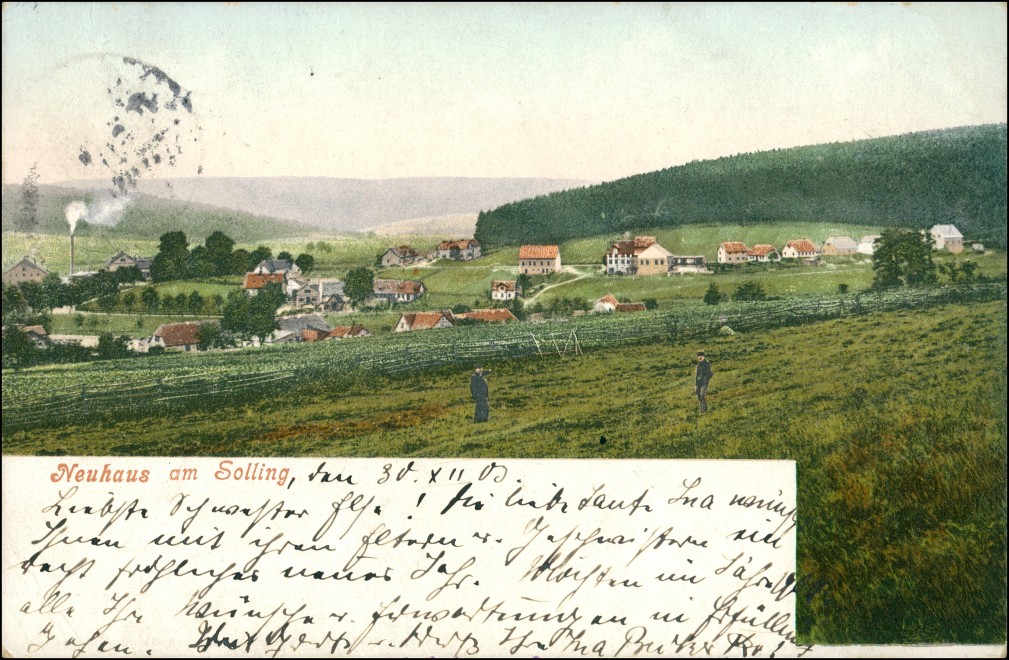 Neuhaus am Solling, den 30. XII 03.
Liebste Schwester Else! Die liebe Tante Ina wünscht
Ihnen mit ihren Eltern u. Geschwistern ein
recht fröhliches neues Jahr. Möchten im Jahre
alle Ihre Wünsche u. Erwartungen in Erfüllung
gehen. Ihre Ina